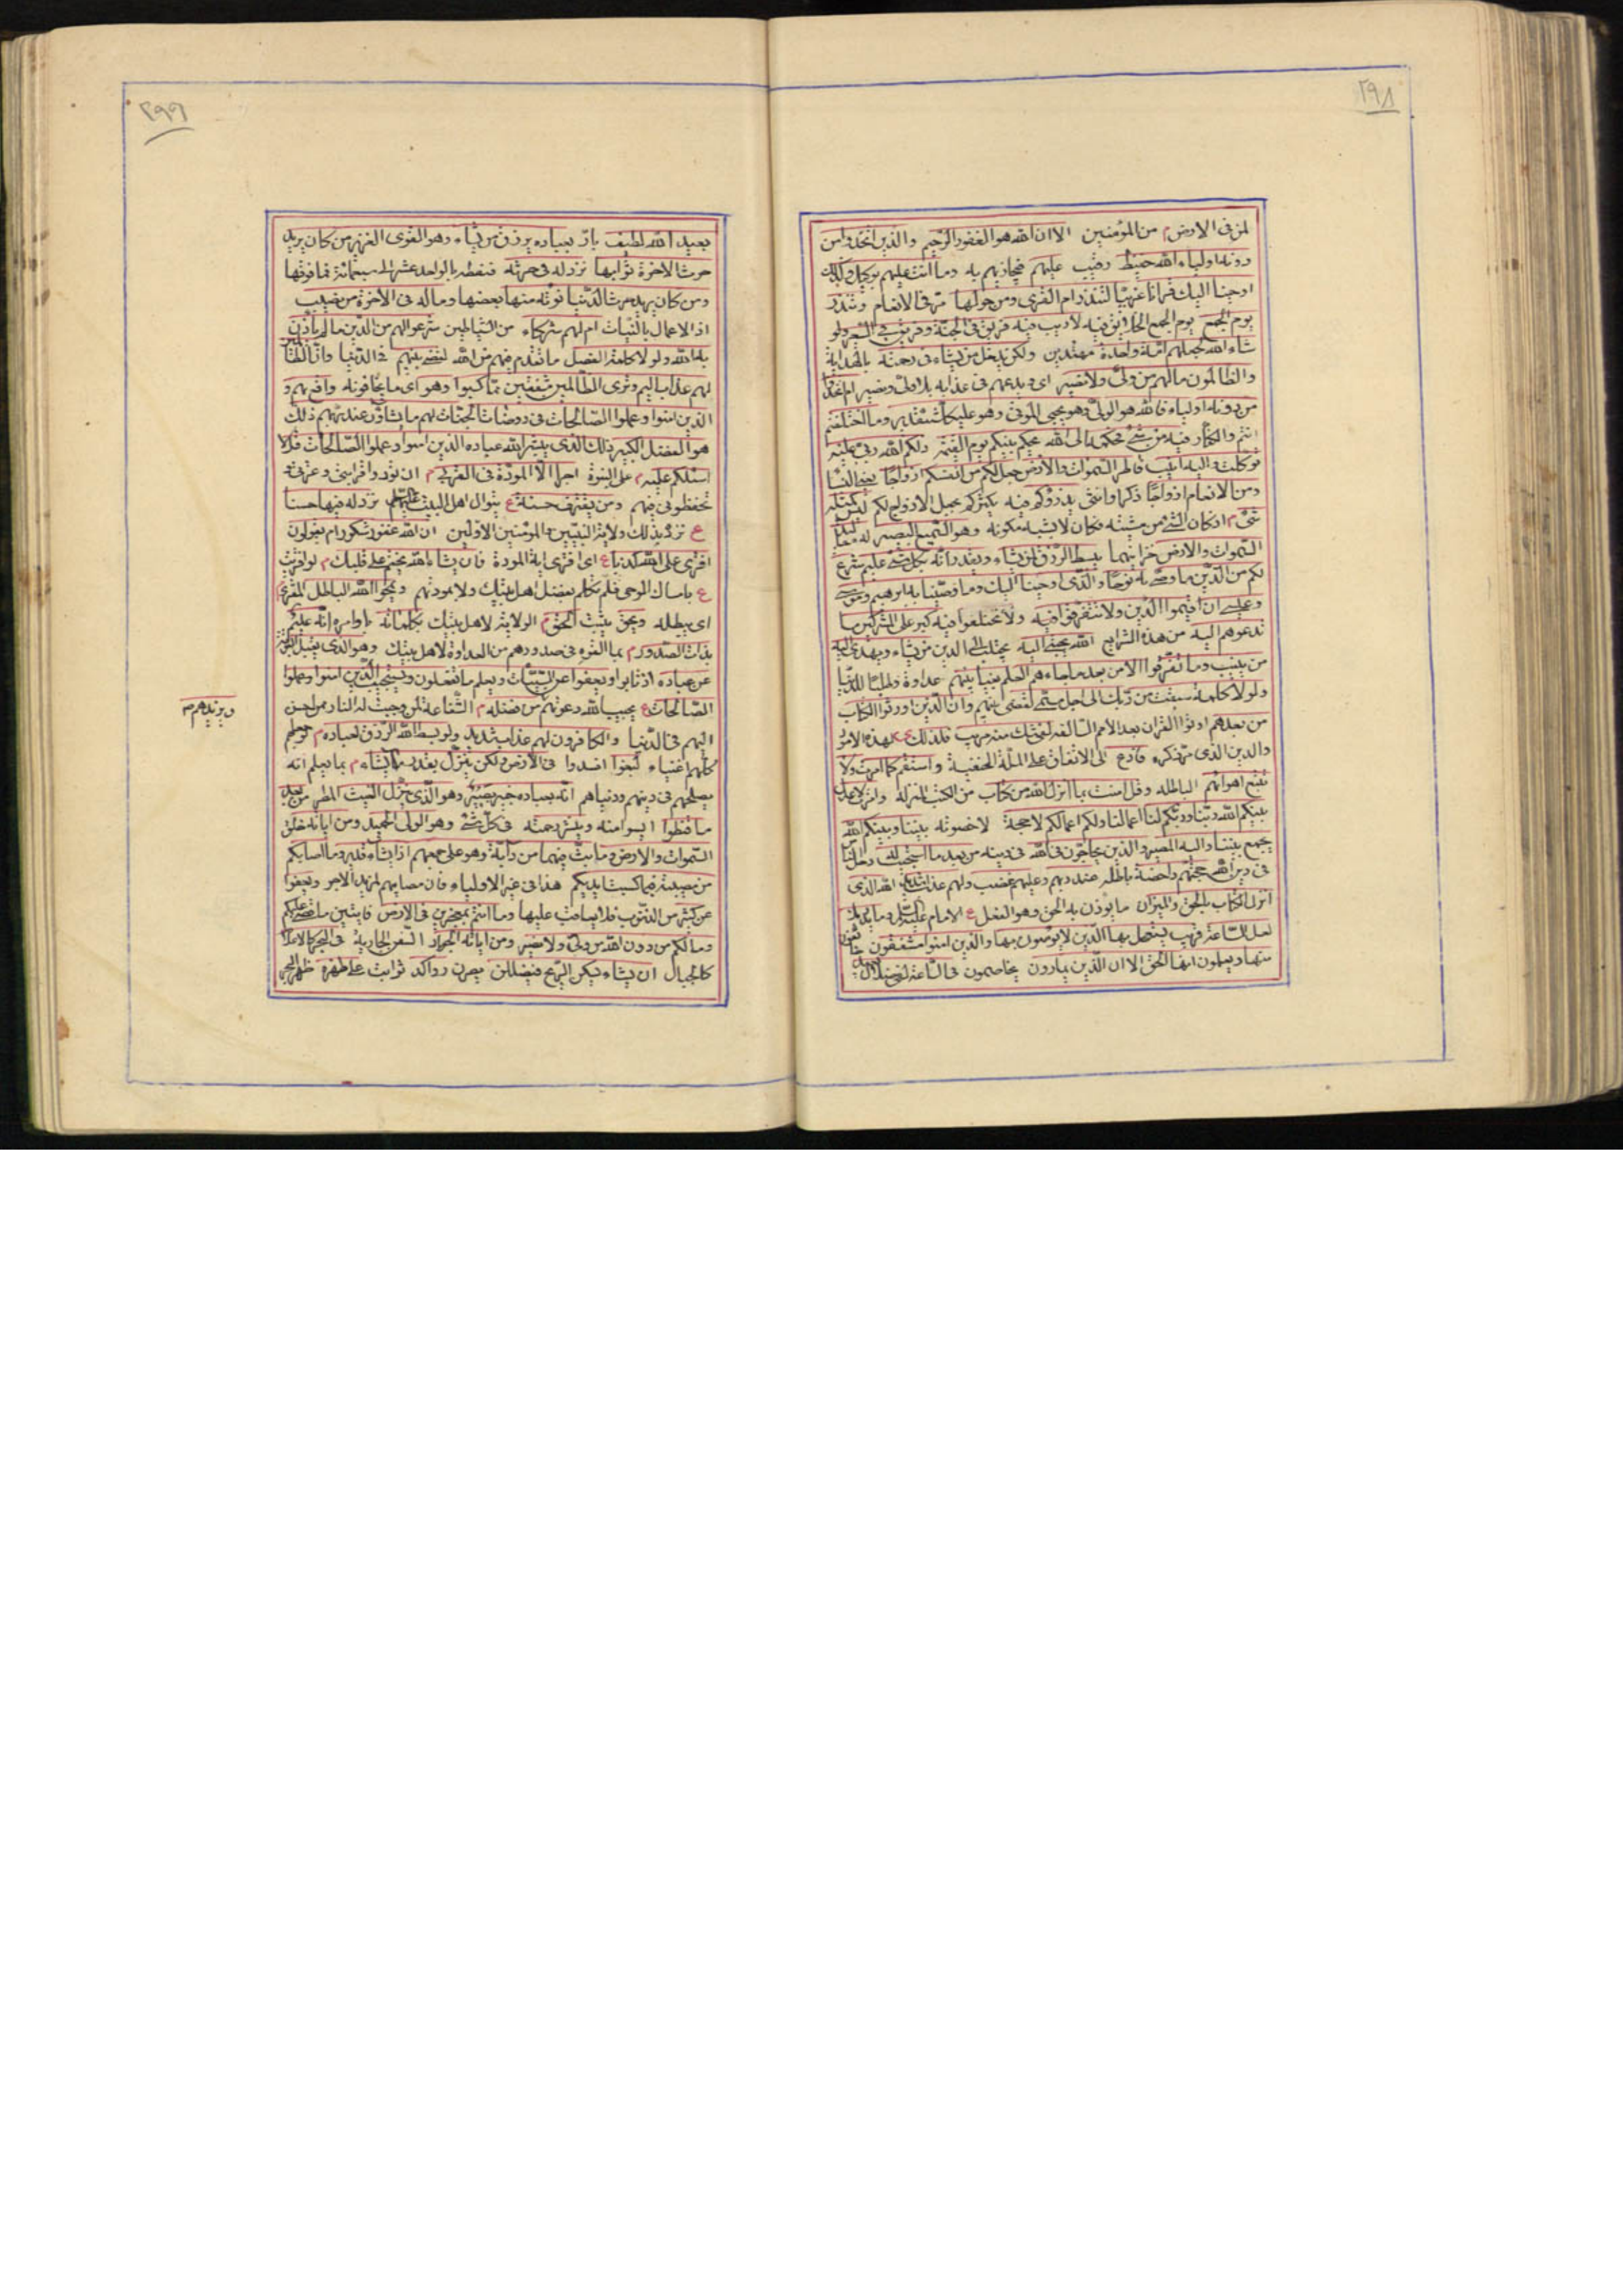 ٢٩٨
لمن فى الارض م من المؤمنين الا ان الله هو الغفور الرحيم والذين اتخذوا من
دونه اولياء الله حفيظ رقيب عليهم فيجازيهم به وما انت عليهم بوكيل وكذلك
اوحينا اليك قرانا عربيا لتنذر ام القرى ومن حولها مر فى الانعام وتنذر
يوم الجمع يوم الجمع الخلائق فيه لا ريب فيه فريق فى الجنة وفريق فى السعير ولو
شاء الله لجعلهم امة واحدة مهتدين ولكن يدخل من يشاء فى رحمته بالهداية
والظالمون مالهم من ولى ولا نصير اى ويدعهم فى عذابه بلا ولى ونصير ام اتخذوا
من دونه اولياء فالله هو الولى وهو يحيى الموتى وهو على كل شئ قدير وما اختلفتم
انتم والكفار فيه من شئ فحكمه الى الله يحكم بينكم يوم القيمة ذلكم الله ربى عليه
توكلت واليه انيب فاطر السموات والارض جعل لكم من انفسكم ازواجا يعنى النساء
ومن الانعام ازواجا ذكرا وانثى يذرؤكم فيه يكثركم بجعل الازواج لكم ليس كمثله
شئ م اذ كان الشئ من مشيته فكان لا يشبه مكونه وهو السميع البصير له مقاليد
السموات والارض خزاينهما يبسط الرزق لمن يشاء ويقدر انه بكل شئ عليم شرع
لكم من الدين ما وصى به نوحا والذى اوحينا اليك وما وصينا به ابرهيم وموسى
وعيسى ان اقيموا الدين ولا تتفرقوا فيه ولا تختلفوا فيه كبر على المشركين ما
تدعوهم اليه من هذه الشرايع الله يجتبى اليه يجتلب الى الدين من يشاء ويهدى اليه
من ينيب وما تفرقوا الا من بعد ما جاءهم العلم بغيا بينهم عداوة وطلبا للدنيا
ولولا كلمة سبقت من ربك الى اجل مسمى لقضى بينهم وان الذين اورثوا الكتاب
من بعدهم اوتوا القران بعد الامم السالفه لفى شك منه مريب فلذلك لهذه الامور
والدين الذى مر ذكره فادع الى الاتفاق على الملة الحنفية واستقم كما امرت ولا
تتبع اهوائهم الباطله وقل امنت بما انزل الله من كتاب من الكتب المنزلة وامرت لاعدل
بينكم الله ربنا وربكم لنا اعمالنا ولكم اعمالكم لا حجة لا خصومة بيننا وبينكم الله
يجمع بيننا واليه المصير والذين يحاجون فى الله فى دينه من بعد ما استجيب له
فى دين الله حجتهم داحضة باطله عند ربهم وعليهم غضب ولهم عذاب شديد الله الذى
انزل الكتاب بالحق والميزان ما يوزن به الحق وهو العدل ع الامام عليه السلام وما يدريك
لعل الساعة قريب يستعجل بها الذين لا يؤمنون بها والذين امنوا مشفقون
منها ويعلمون انها الحق الا ان الذين يمارون يخاصمون فى الساعة لفى ضلال
٢٩٩
بعيد الله لطيف بار بعباده يرزق من يشاء وهو القوى العزيز من كان يريد
حرث الاخرة ثوابها نزد له فى حرثه فنعطه بالواحد عشرا الى سبعمائة فما فوقها
ومن كان يريد حرث الدنيا نؤته منها بعضها وماله فى الاخرة من نصيب
اذ الاعمال بالنيات ام لهم شركاء من الشياطين شرعوا لهم من الدين ما لم يأذن
به الله ولولا كلمة الفصل ما تقدم فيهم من الله لقضى بينهم فى الدنيا وان الظالمين
لهم عذاب اليم وترى الظالمين مشفقين مما كسبوا وهو اى ما يخافونه واقع بهم و
الذين امنوا وعملوا الصالحات فى روضات الجنات لهم ما يشاؤن عند ربهم ذلك
هو الفضل الكبير ذلك الذى يبشر الله عباده الذين امنوا وعملوا الصالحات قل لا
اسئلكم عليه م على النبوة اجرا الا المودة فى القربى م ان تودوا قرابتى وعترتى و
تحفظونى فيهم ومن يقترف حسنة ع بتوال اهل البيت عليهم نزد له فيها حسنا
ع نزد بذلك ولاية النبيين والمؤمنين الاولين ان الله غفور شكور ام يقولون
افترى على الله كذبا ع اى افترى اية المودة فان يشاء الله يختم على قلبك م لو افتريت
ع بامساك الوحى فلم تكلم بفضل اهل بيتك ولا بمودتهم ويمحو الله الباطل المفترى
اى يبطله ويحق يثبت الحق م الولاية لاهل بيتك بكلماته باوامره انه عليم
بذات الصدور م بما القوه فى صدورهم من العداوة لاهل بيتك وهو الذى يقبل التوبة
عن عباده اذ تابوا ويعفوا عن السيئات ويعلم ما تفعلون ويستجيب الذين امنوا وعملوا
الصالحات ع يجيب الله دعوتهم من فضله م الشفاعة لمن وجبت له النار ممن احسن
ويزيدهم
اليهم فى الدنيا والكافرون لهم عذاب شديد ولو بسط الله الرزق لعباده م
كلهم اغنياء لبغوا افسدوا فى الارض ولكن ينزل بقدر ما يشاء م بما يعلم انه
يصلحهم فى دينهم ودنياهم انه بعباده خبير بصير وهو الذى ينزل الغيث المطر من بعد
ما قنطوا ايسوا منه وينشر رحمته فى كل شئ وهو الولى الحميد ومن اياته خلق
السموات والارض وما بث فيهما من دابة وهو على جمعهم اذا يشاء قدير وما اصابكم
من مصيبة فبما كسبت ايديكم هذا فى غير الاولياء فان مصايبهم لمزيد الاجر ويعفوا
عن كثير من الذنوب فلا يعاقب عليها وما انتم بمعجزين فى الارض فايتين ما قضى عليكم
وما لكم من دون الله من ولى ولا نصير ومن اياته الجوار السفن الجارية فى البحر كالاعلام
كالجبال ان يشاء يسكن الريح فيظللن يبقين رواكد ثوابت على ظهره ظهر البحر